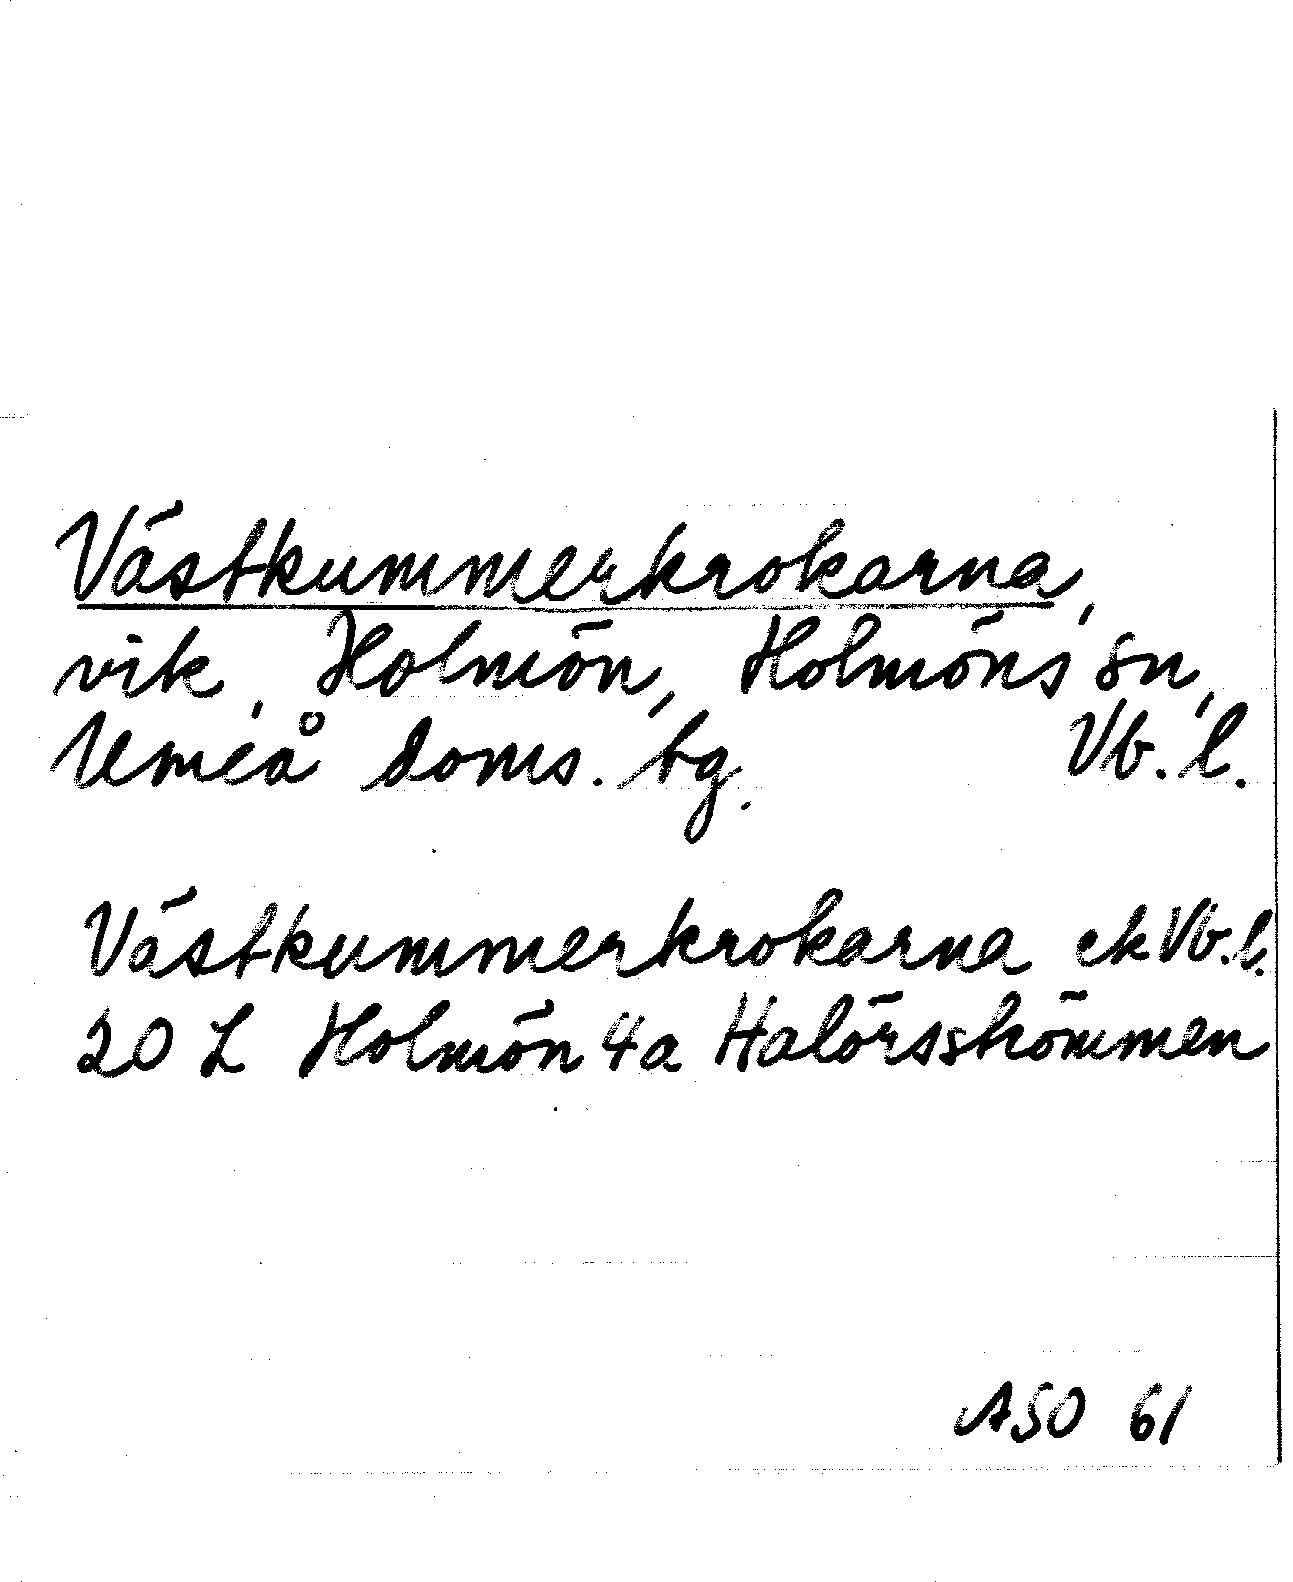 Västkummerkrokarna,
vik, Holmön, Holmöns sn,
Umeå doms. tg. Vb. l.
Västkummerkrokarna ek Vb. l.
20 L Holmön 4a Halörsskömmen
ASO 61